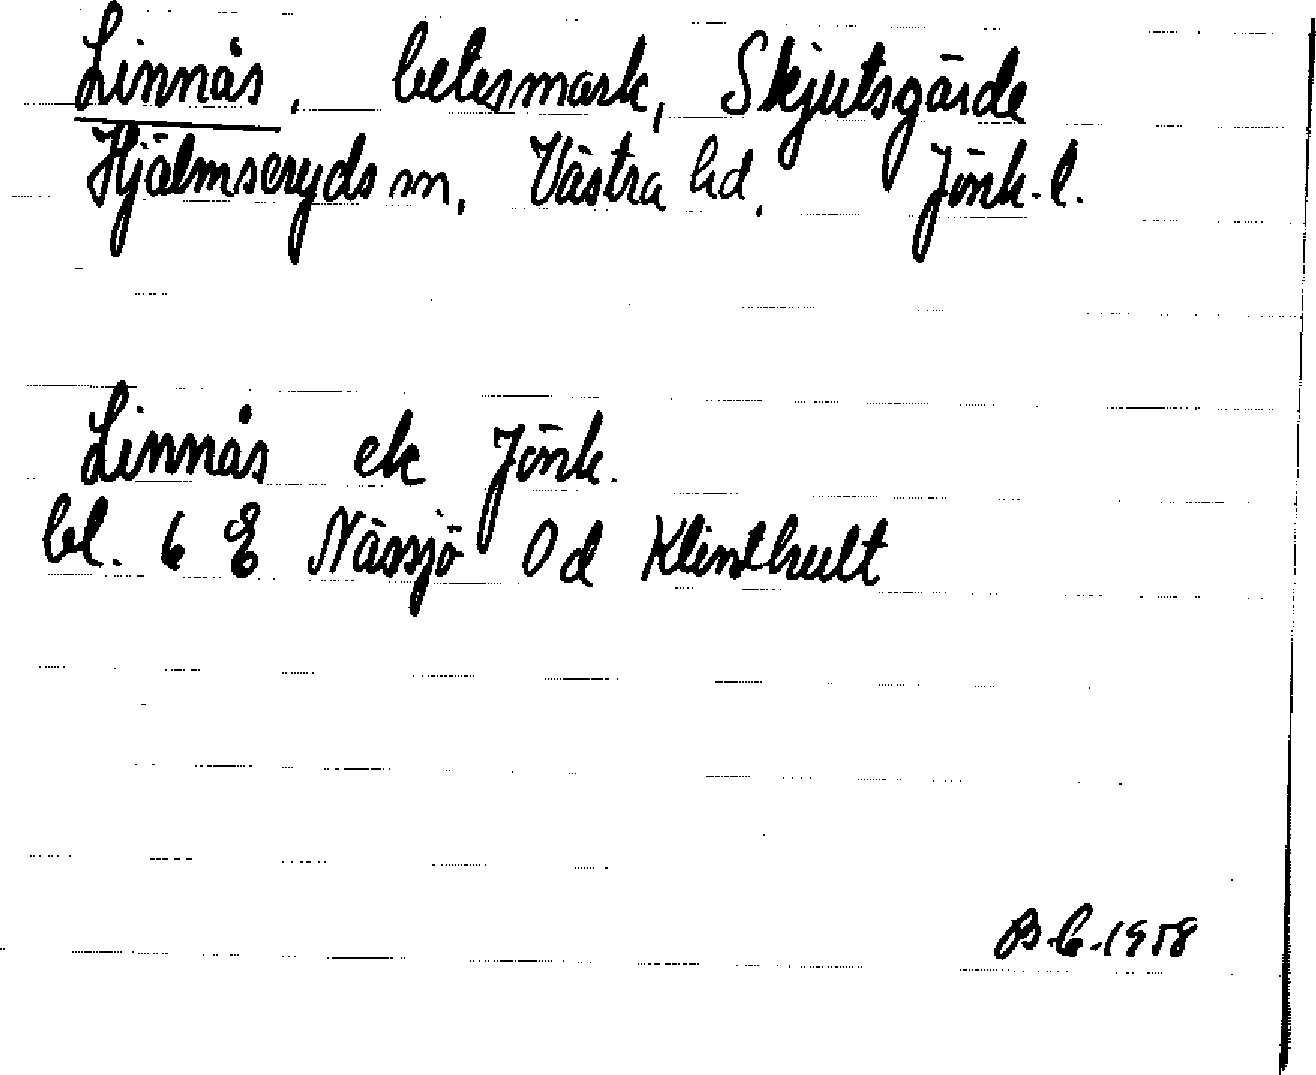 Linnås, betesmark, Skjutsgärde
Hjälmseryds sn, Västra hd. Jönk. l.
Linnås ek Jönk.
bl. 6 E Nässjö 0 d Klinthult
B.C. 1958